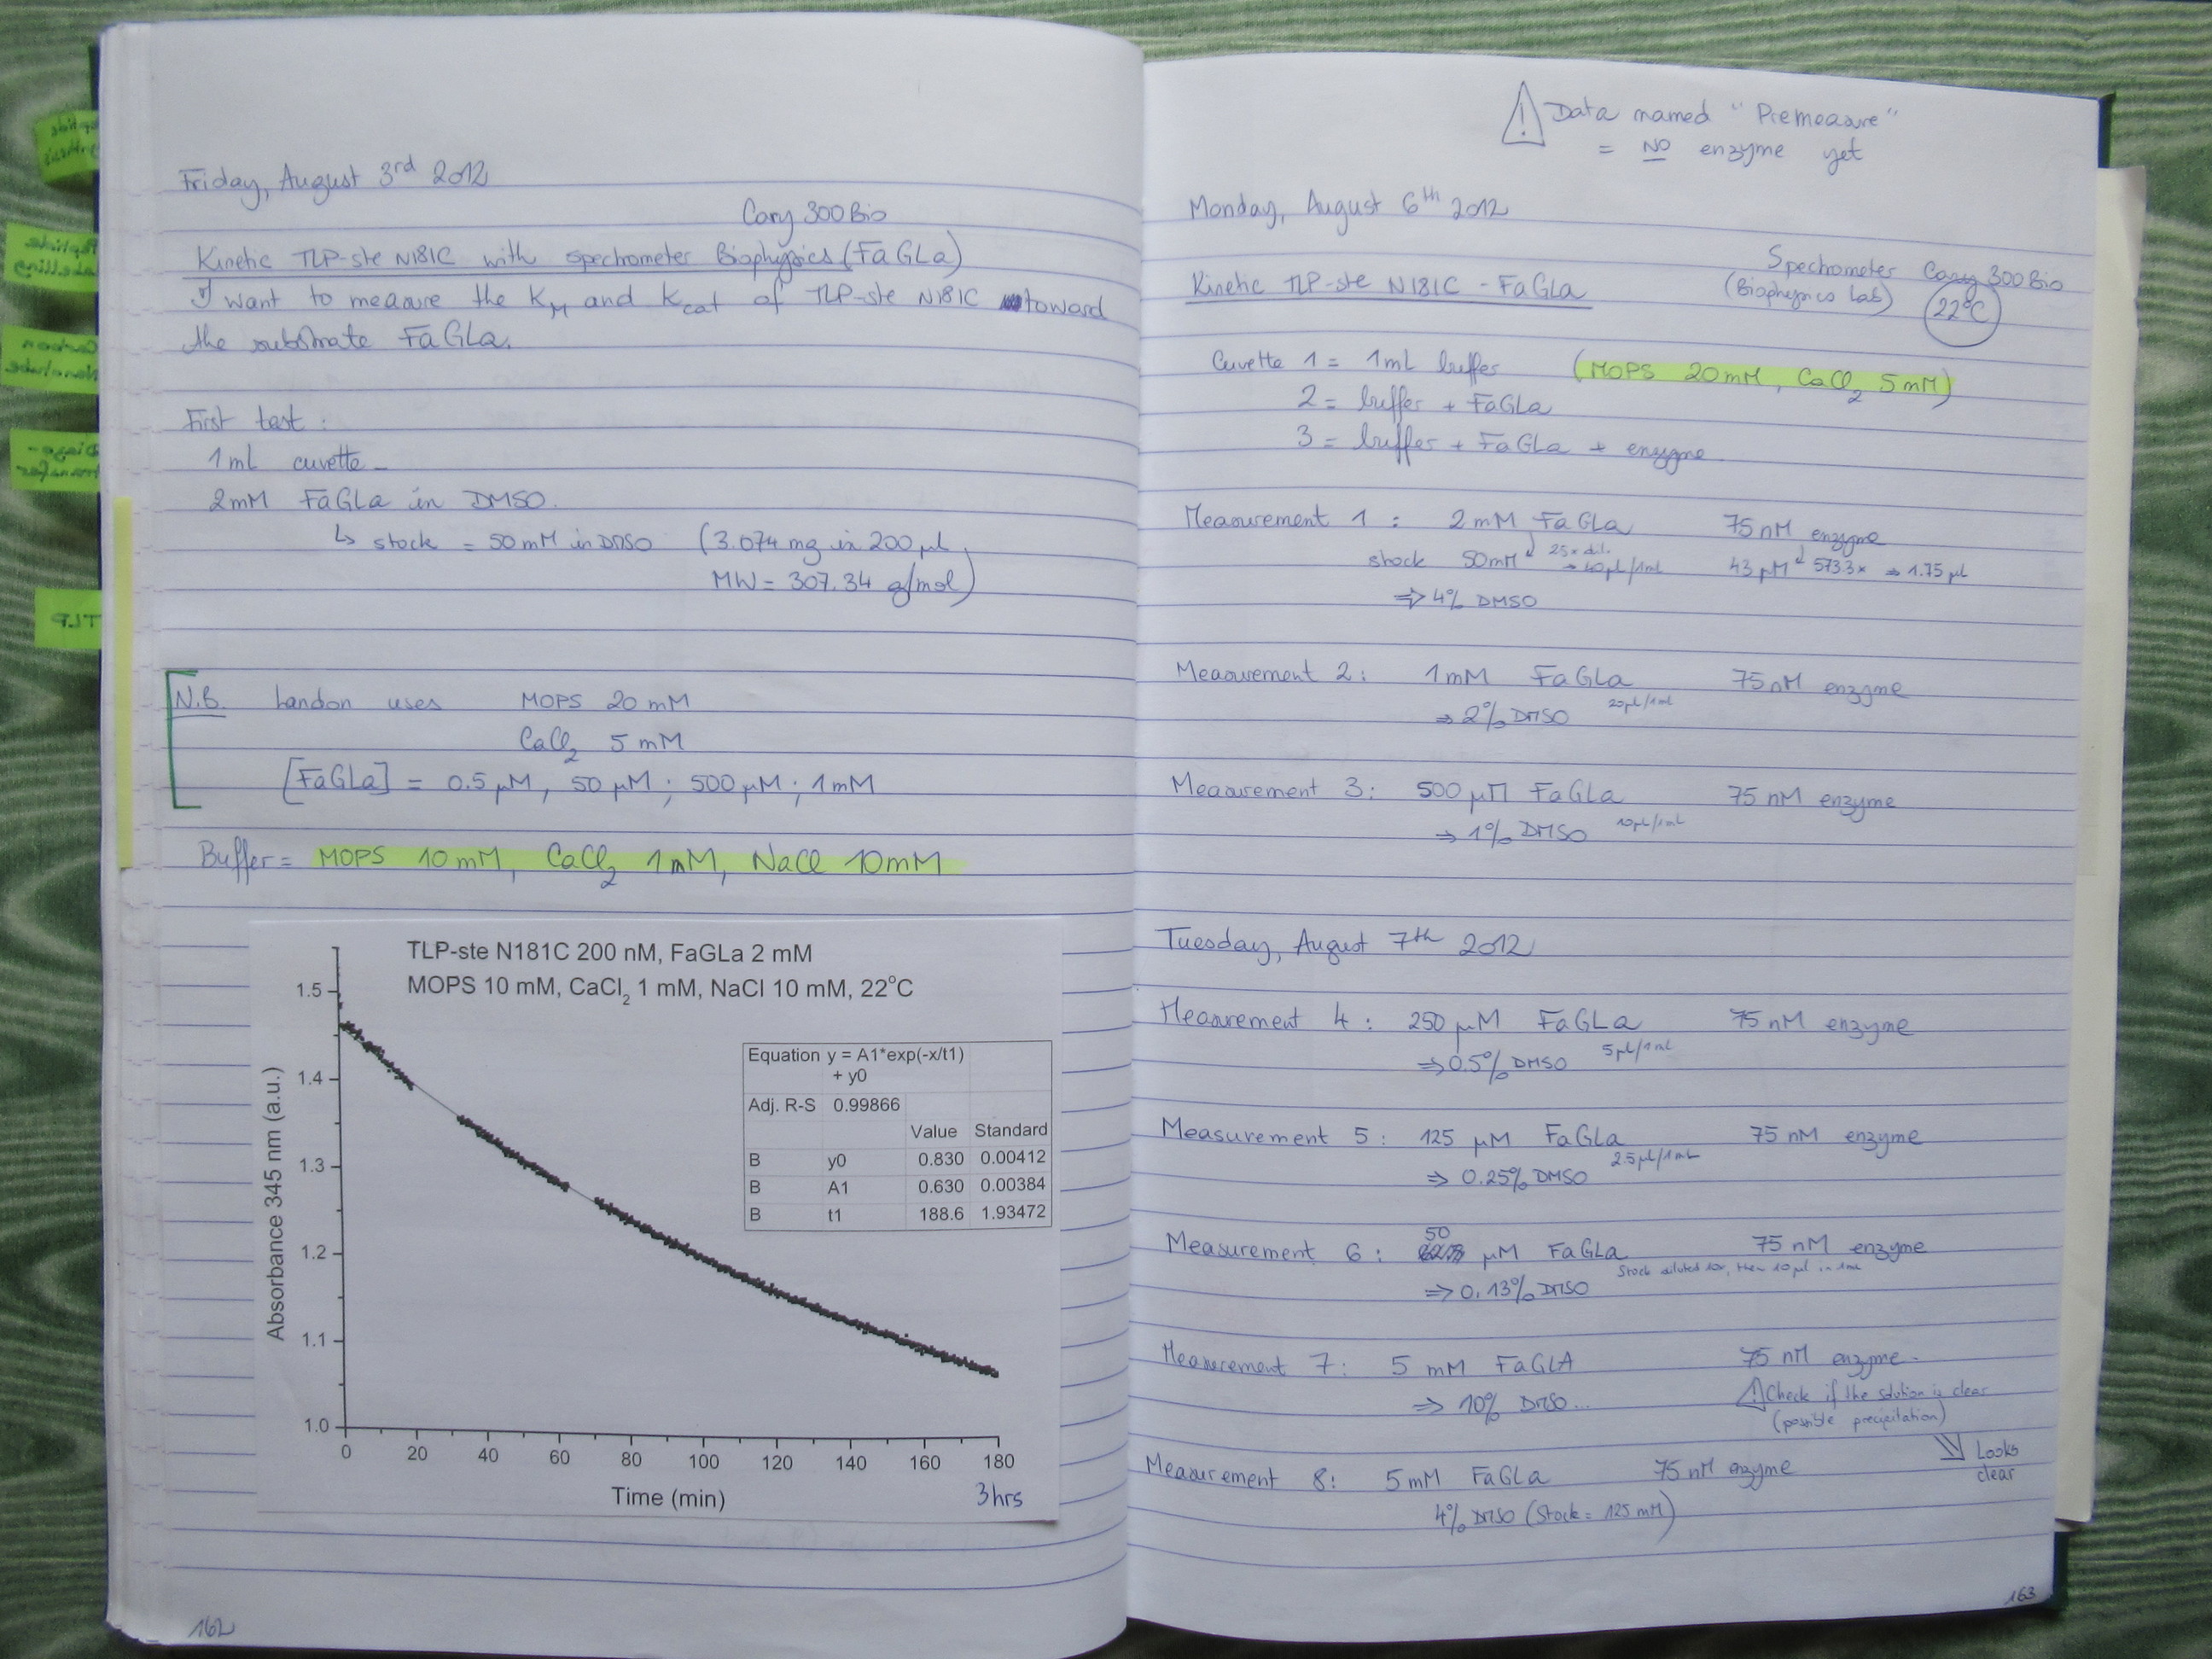 Friday, August 3rd 2012
Cary 300 Bio
Kinetic TLP-ste N181C with spechometer Biophysics (FaGLa)
I want to measure the KM and kcat of TLP-ste N181C toward
the substrate FaGLa.
First test :
1 mL cuvette
2mM FaGLa in DMSO.
↳ stock = 50 mM in DMSO (3.074 mg in 200 µl
MW = 307.34 g/mol)
N.B. Landon uses MOPS 20 mM
CaCl2 5 mM
[FaGLa] = 0.5 µM, 50 µM ; 500 µM ; 1 mM
Buffer = MOPS 10 mM, CaCl2 1 mM, NaCl 10 mM
TLP-ste N181C 200 nM, FaGLa 2 mM
MOPS 10 mM, CaCl2 1 mM, NaCl 10 mM, 22°C
Equation y = A1*exp(-x/t1)
+ y0
Adj. R-S 0.99866
Value Standard
B y0 0.830 0.00412
B A1 0.630 0.00384
B t1 188.6 1.93472
Absorbance 345 nm (a.u.)
1.5
1.4
1.3
1.2
1.1
1.0
0 20 40 60 80 100 120 140 160 180
Time (min)
3 hrs
162
⚠ Data named "Premeasure"
= NO enzyme yet
Monday, August 6th 2012
Kinetic TLP-ste N181C - FaGLa
Spechometer Cary 300 Bio
(Biophysics Lab) 22°C
Cuvette 1 = 1 mL buffer (MOPS 20 mM, CaCl2 5 mM)
2 = buffer + FaGLa
3 = buffer + FaGLa + enzyme
Measurement 1 : 2 mM FaGLa 75 nM enzyme
stock 50 mM 25x dil. → 40 µl/1 mL 43 µM 573.3x ⇒ 1.75 µl
⇒ 4% DMSO
Measurement 2 : 1 mM FaGLa 75 nM enzyme
⇒ 2% DMSO 20 µl/1 mL
Measurement 3 : 500 µM FaGLa 75 nM enzyme
⇒ 1% DMSO 10 µl/1 mL
Tuesday, August 7th 2012
Measurement 4 : 250 µM FaGLa 75 nM enzyme
⇒ 0.5% DMSO 5 µl/1 mL
Measurement 5 : 125 µM FaGLa 75 nM enzyme
⇒ 0.25% DMSO 2.5 µl/1 mL
Measurement 6 : 50 µM FaGLa 75 nM enzyme
Stock diluted 10x, then 10 µl in 1 mL
⇒ 0.13% DMSO
Measurement 7 : 5 mM FaGLA 75 nM enzyme.
⇒ 10% DMSO... ⚠ Check if the solution is clear
(possible precipitation)
Looks
clear
Measurement 8 : 5 mM FaGLa 75 nM enzyme
4% DMSO (Stock = 125 mM)
163
Peptide
Labelling
Carbon
Nanotube
Diazo-
transfer
TLP